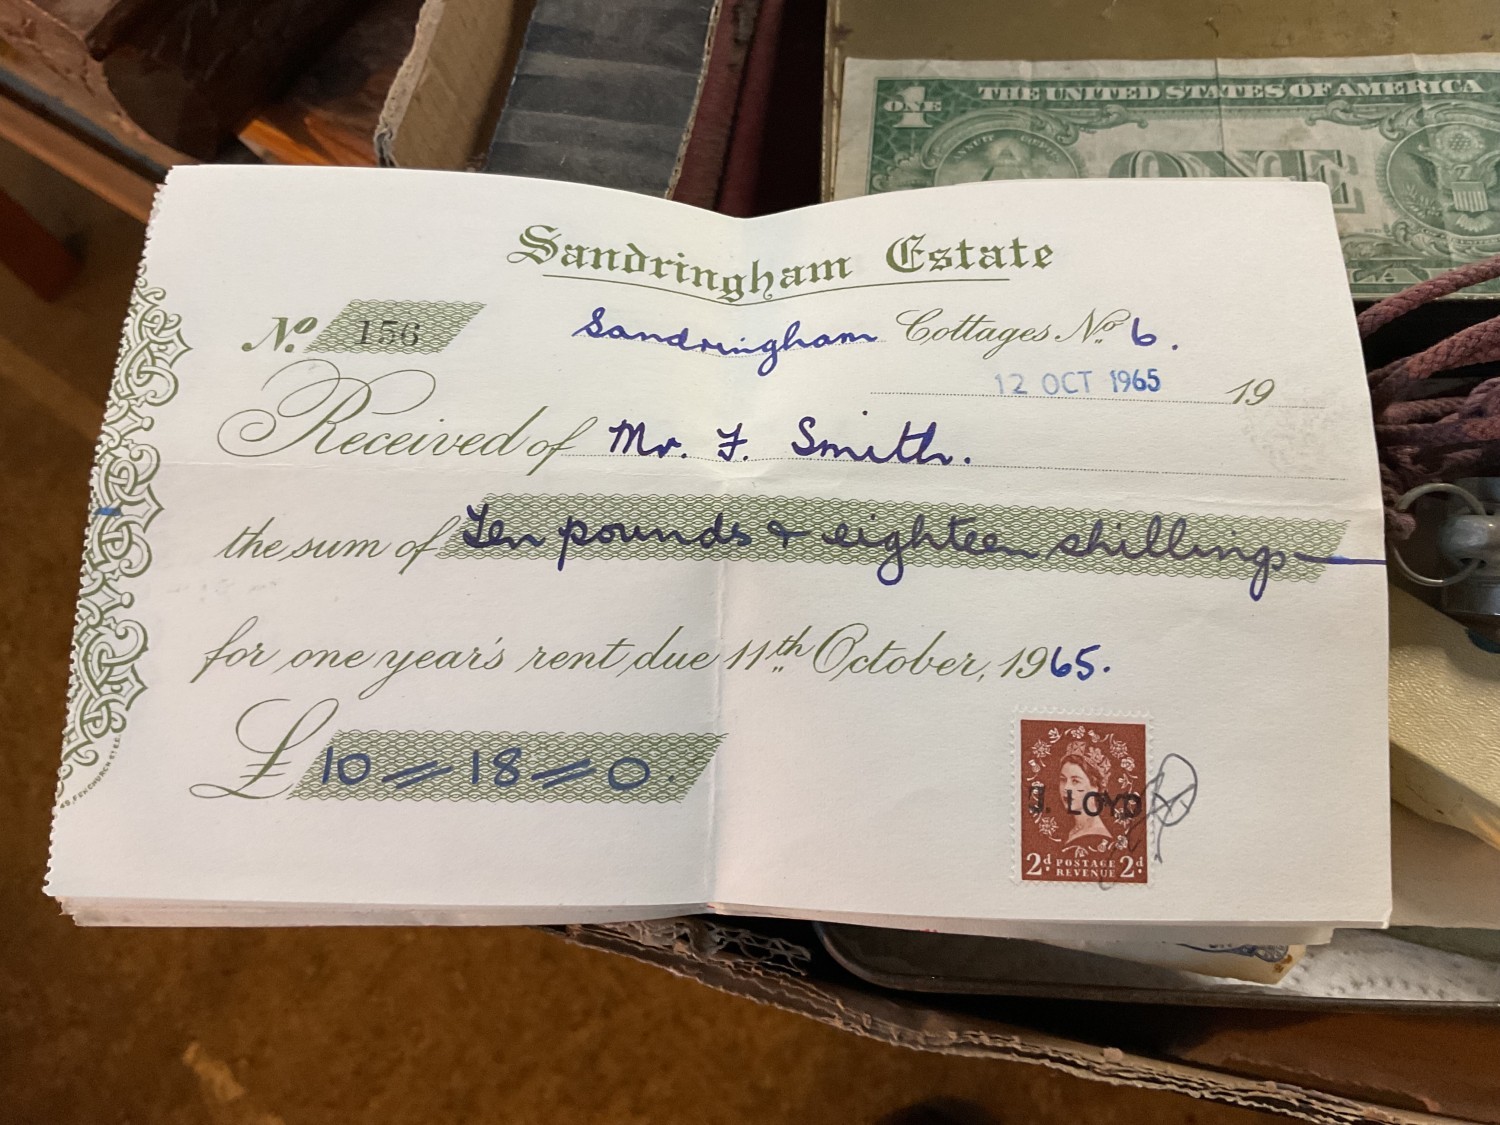 THE UNITED STATES OF AMERICA
1
ONE
ANNUIT CŒPTIS
ONE
Sandringham Estate
No. 156
Sandringham Cottages No. 6.
12 OCT 1965 19
Received of Mr. F. Smith.
the sum of Ten pounds & eighteen shillings
for one year's rent due 11th October, 1965.
£ 10 = 18 = 0.
J. LOYD
2d POSTAGE 2d
REVENUE